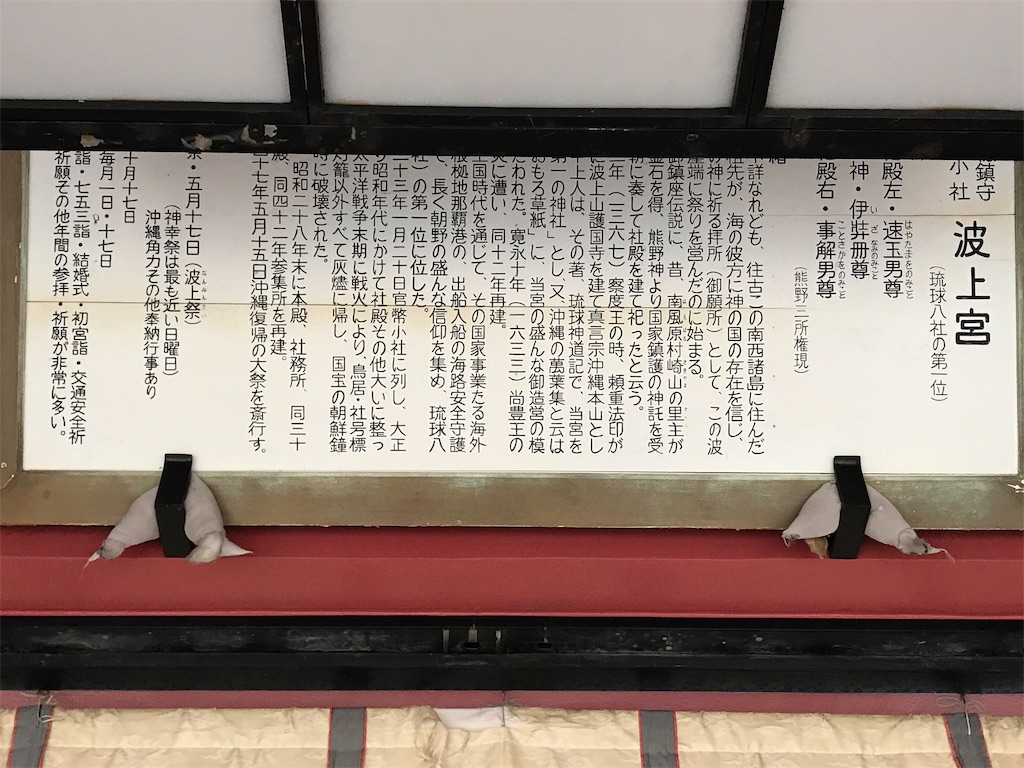 鎮守
小社
波上宮
(琉球八社の第一位)
殿左・速玉男尊
はやたまをのみこと
神・伊弉冊尊
いざなみのみこと
殿右・事解男尊
ことさかをのみこと
(熊野三所権現)
緒
詳なれども、往古この南西諸島に住んだ
祖先が、海の彼方に神の国の存在を信じ、
の神に祈る拝所(御願所)として、この波
崖端に祭りを営んだのに始まる。
御鎮座伝説に、昔、南風原村崎山の里主が
霊石を得、熊野神より国家鎮護の神託を受
朝に奏して社殿を建て祀ったと云う。
三年(一三六七)察度王の時、頼重法印が
に波上山護国寺を建て真言宗沖縄本山とし
中上人は、その著、琉球神道記で、当宮を
第一の神社」とし又、沖縄の萬葉集と云は
おもろ草紙」に、当宮の盛んな御造営の模
たわれた。寛永十年(一六三三)尚豊王の
災に遭い、同十二年再建。
王国時代を通して、その国家事業たる海外
根拠地那覇港の、出船入船の海路安全守護
て、長く朝野の盛んな信仰を集め、琉球八
社)の第一位に位した。
二十三年一月二十日官幣小社に列し、大正
り昭和年代にかけて社殿その他大いに整っ
太平洋戦争末期に戦火により、鳥居・社号標
火籠以外すべて灰燼に帰し、国宝の朝鮮鐘
時に破壊された。
昭和二十八年末に本殿、社務所、同三十
殿、同四十二年参集所を再建。
十七年五月十五日沖縄復帰の大祭を斎行す。
祭・五月十七日(波上祭)
なんみんさい
(神幸祭は最も近い日曜日)
沖縄角力その他奉納行事あり
十月十七日
毎月一日・十七日
詣・七五三詣・結婚式・初宮詣・交通安全祈
祈願その他年間の参拝・祈願が非常に多い。